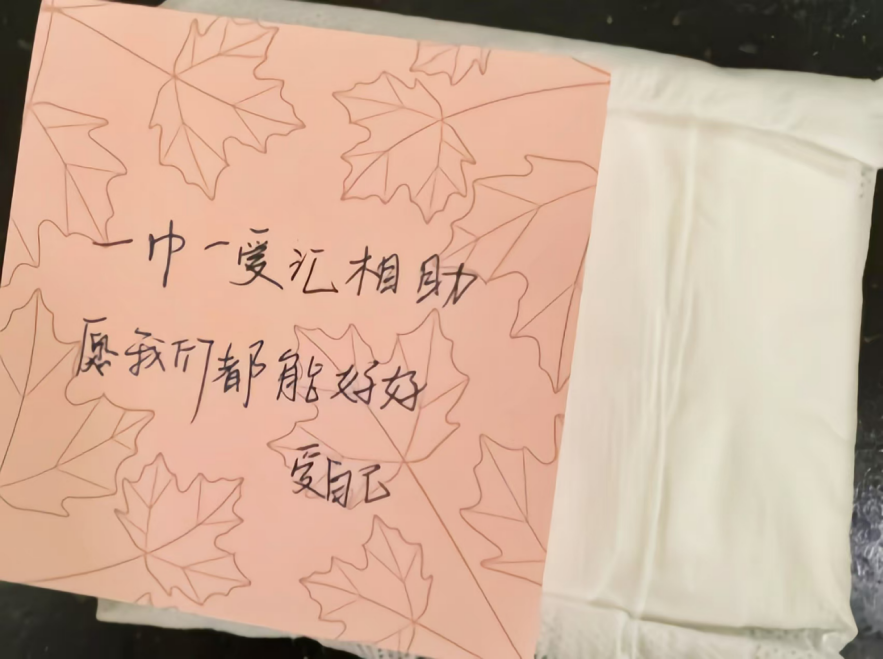 一巾一爱汇相助
愿我们都能好好
爱自己